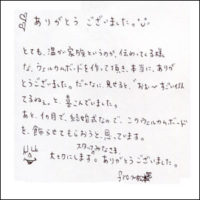 ありがとう ございました。
とても、温か家族というのが、伝わってくる様
な、ウェルカムボードを作って頂き、本当に、ありが
とうございました。だんなに、見せると、「おぉ〜すごいなん
てるねぇ」と、喜んでいました。
あと、1ヶ月で、結婚式なので、このウェルカムボード
を、飾らせてもらおうと、思っています。
スタッフみなさま
大セツにします。ありがとうございました。
from